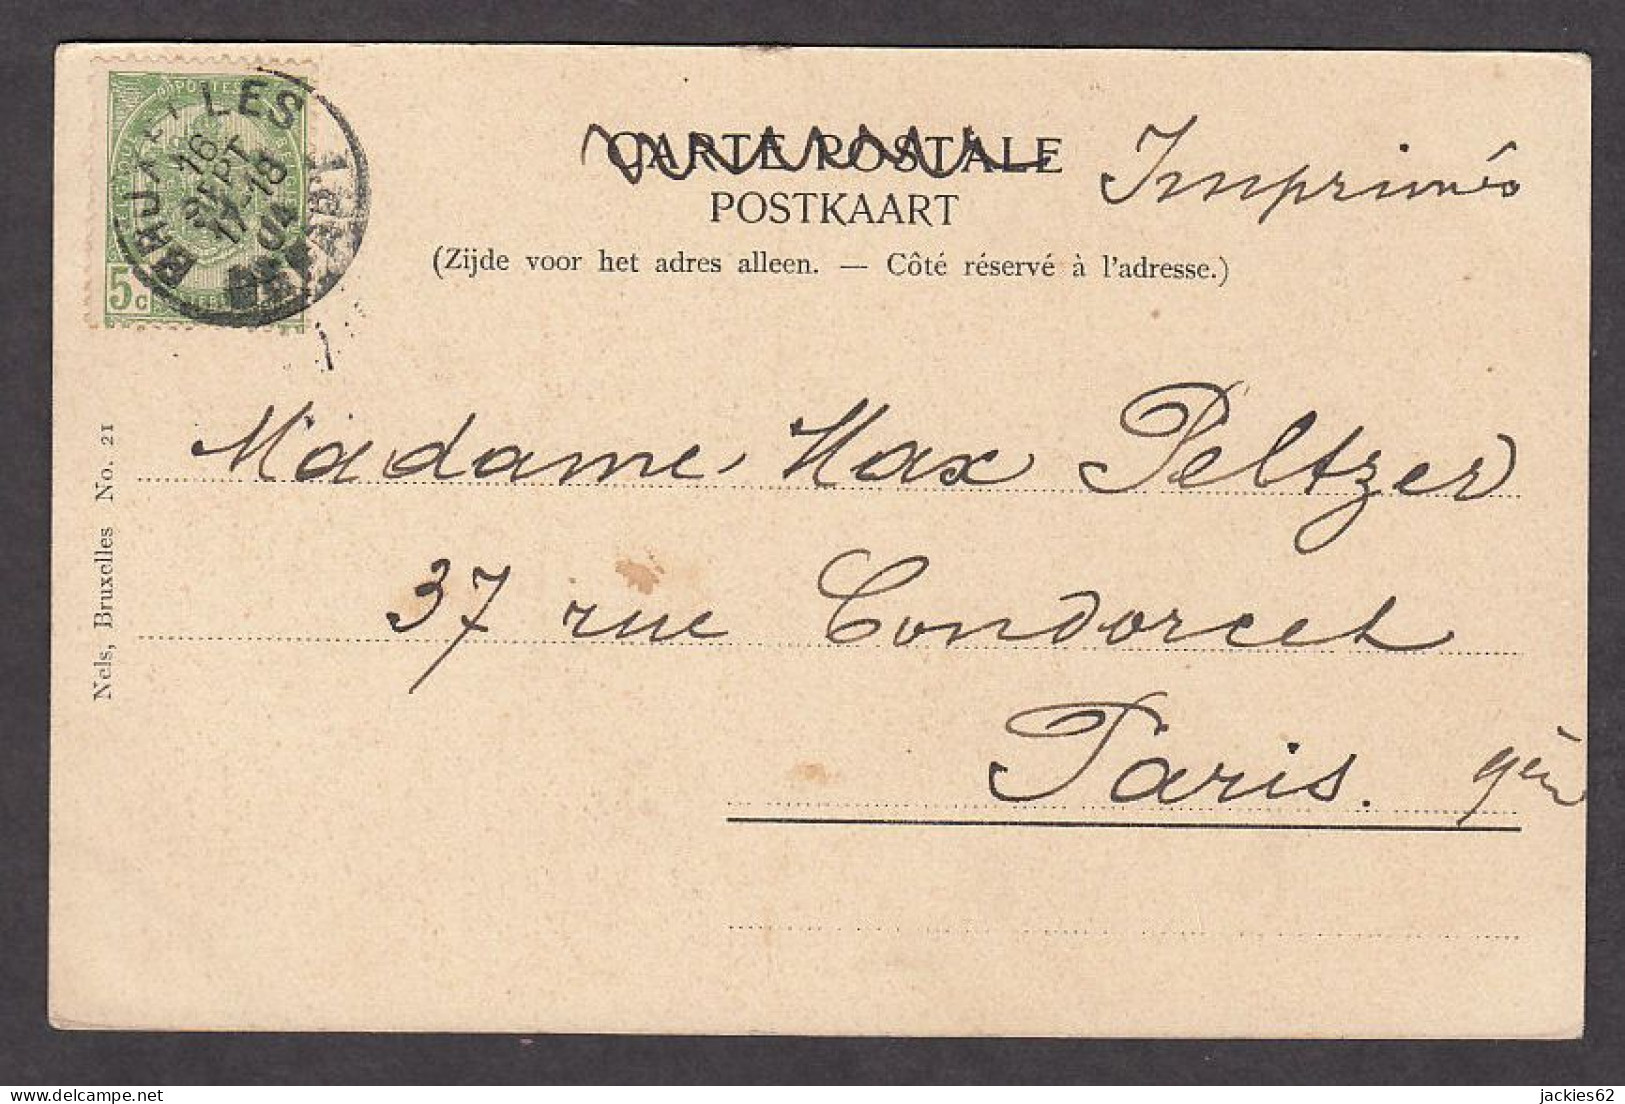 POSTES
BRUXELLES
16
SEPT
17-18
04
DEPART
5c
CARTE POSTALE
Imprimés
POSTKAART
(Zijde voor het adres alleen. — Côté réservé à l'adresse.)
Nels, Bruxelles No. 21
Madame Max Peltzer
37 rue Condorcet
Paris.
jackies62
delcampe.net